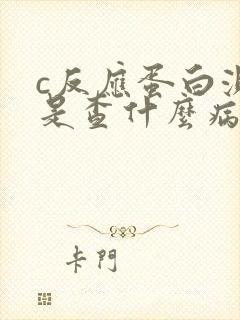 c反應蛋白測
是查什麼病
卡門